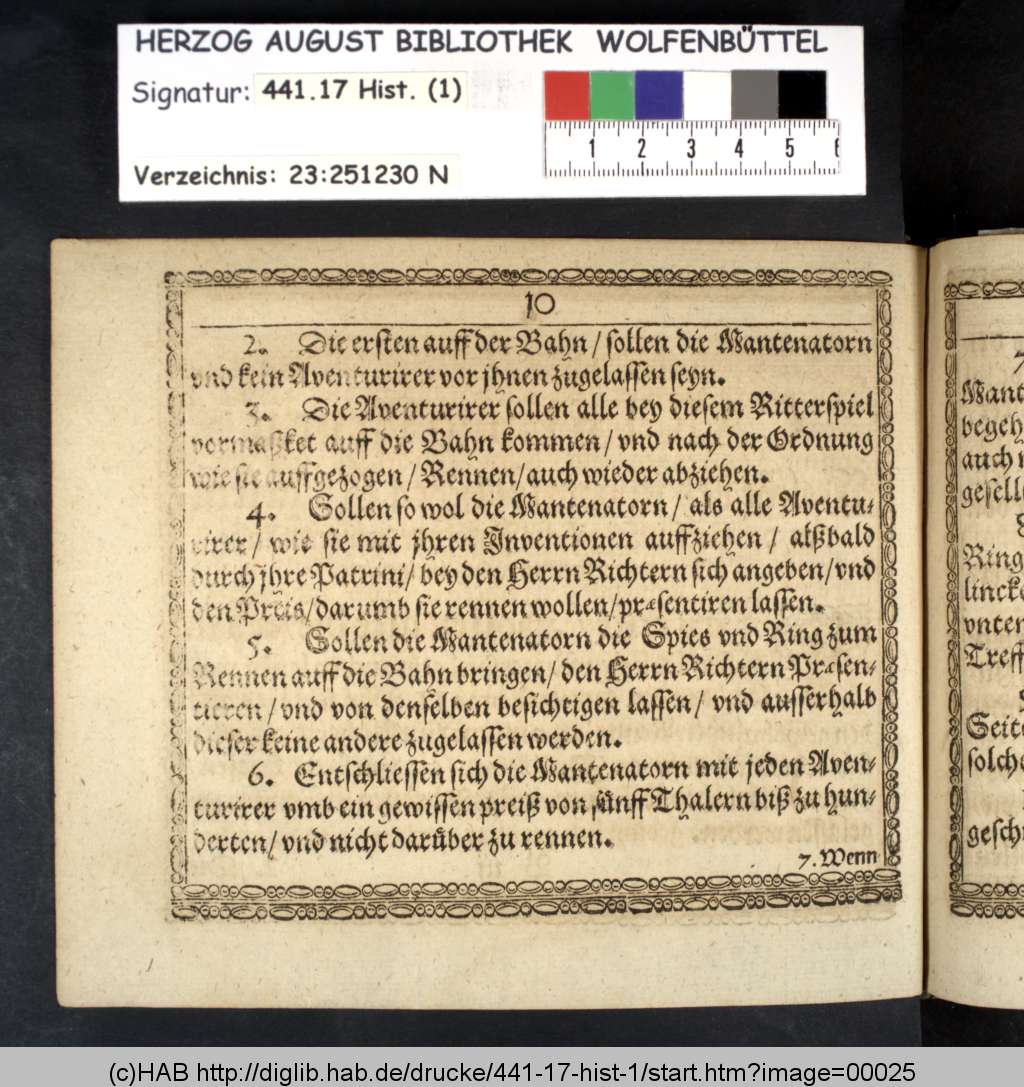 HERZOG AUGUST BIBLIOTHEK WOLFENBÜTTEL
Signatur: 441.17 Hist. (1)
1 2 3 4 5 6
Verzeichnis: 23:251230 N
10
2. Die ersten auff der Bahn / sollen die Mantenatorn
vnd kein Aventurirer vor jhnen zugelassen seyn.
3. Die Aventurirer sollen alle bey diesem Ritterspiel
vermaßket auff die Bahn kommen / vnd nach der Ordnung
wie sie auffgezogen / Rennen / auch wieder abziehen.
4. Sollen so wol die Mantenatorn / als alle Aventu-
rirer / wie sie mit jhren Inventionen auffziehen / alßbald
durch jhre Patrini / bey den Herrn Richtern sich angeben / vnd
den Preis / darumb sie rennen wollen / præsentiren lassen.
5. Sollen die Mantenatorn die Spies vnd Ring zum
Rennen auff die Bahn bringen / den Herrn Richtern Præsen-
tieren / vnd von denselben besichtigen lassen / vnd ausserhalb
dieser keine andere zugelassen werden.
6. Entschliessen sich die Mantenatorn mit jeden Aven-
turirer vmb ein gewissen preiß von fünff Thalern biß zu hun-
derten / vnd nicht darüber zu rennen.
7. Wenn
7
Mant
begeh
auch
gesell
Ring
linck
vnter
Treff
Seit
solche
gesch
(c)HAB http://diglib.hab.de/drucke/441-17-hist-1/start.htm?image=00025